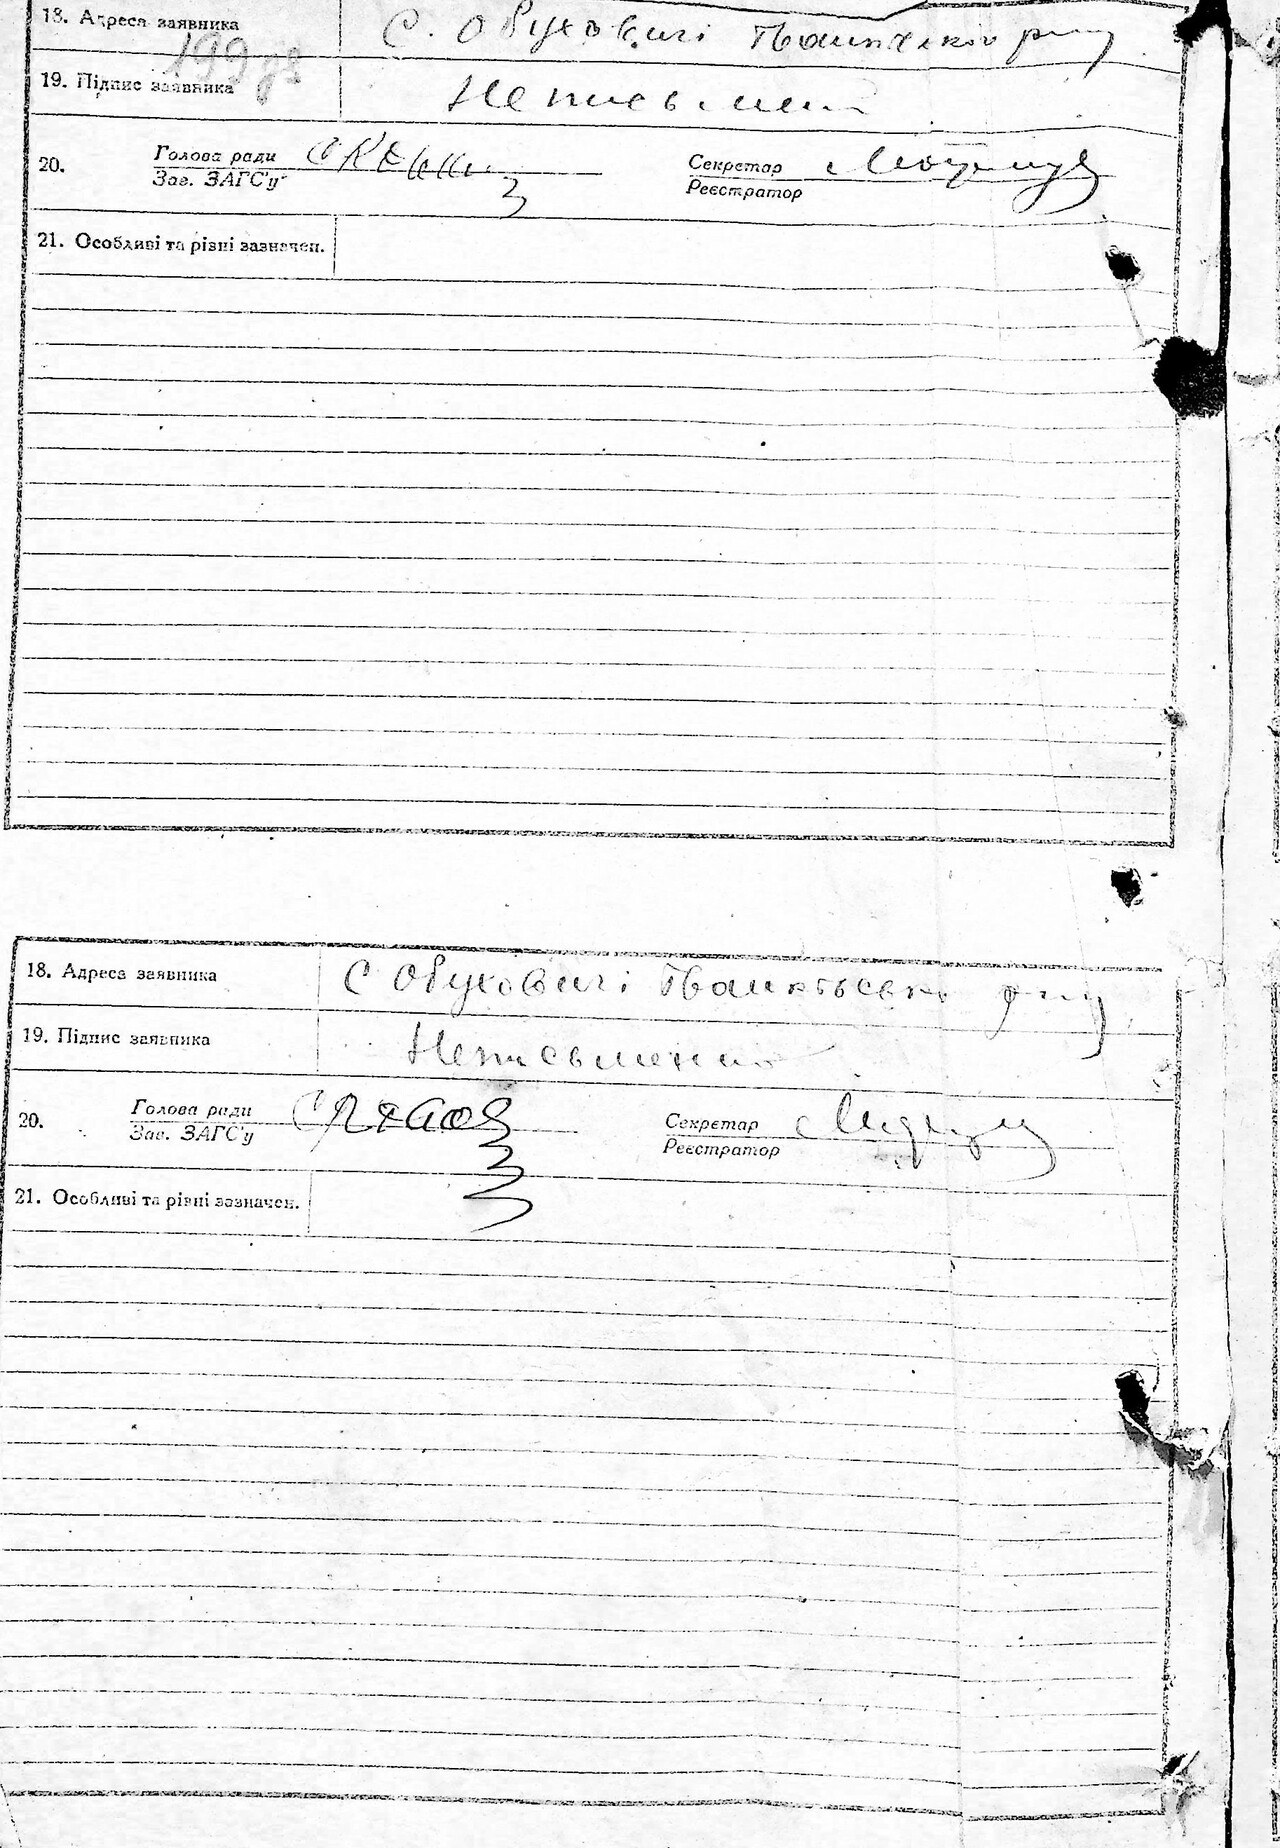 18. Адреса заявника с. Обуховичі Іванківського р-ну
199
19. Підпис заявника Неписьмен
20. Голова ради Секретар
Зав. ЗАГС'у Реєстратор
21. Особливі та різні зазначен.
18. Адреса заявника с Обуховичі Іванківського р-ну
19. Підпис заявника Неписьменна
20. Голова ради Секретар
Зав. ЗАГС'у Реєстратор
21. Особливі та різні зазначен.